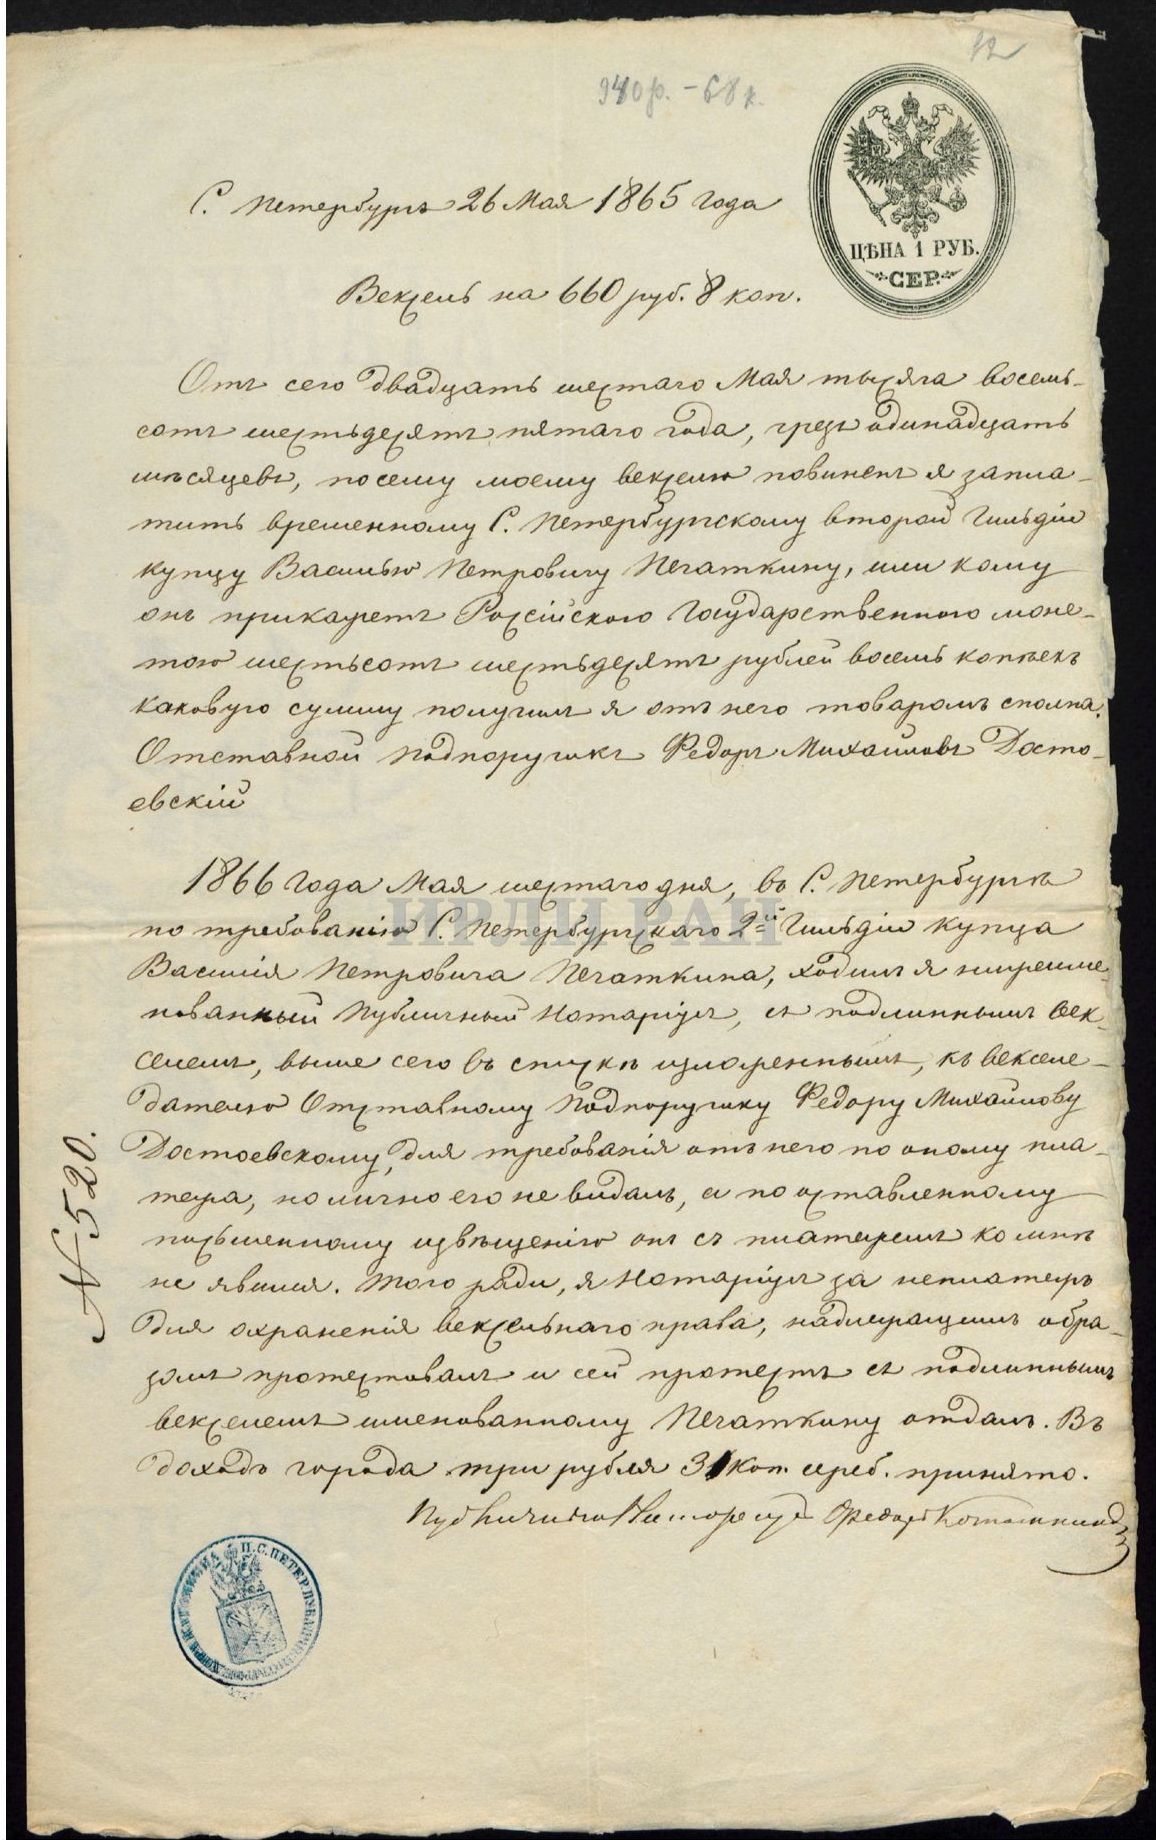 12
940 р. - 68 к.
ЦѢНА 1 РУБ.
СЕР.
С. Петербургъ 26 Мая 1865 года
Вексель на 660 руб. 8 коп.
Отъ сего двадцать шестаго Мая тысяча восемь-
сотъ шестьдесятъ пятаго года, чрезъ одинадцать
мѣсяцевъ, по сему моему векселю повиненъ я запла-
тить временному С. Петербургскому второй гильдіи
купцу Василью Петровичу Печаткину, или кому
онъ прикажетъ Россійского Государственного моне-
тою шестьсотъ шестьдесятъ рублей восемь копѣекъ
каковую сумму получилъ я отъ него товаромъ сполна.
Отставной Подпоручикъ Федоръ Михайловъ Досто-
евскій
1866 года Мая шестаго дня, въ С. Петербургѣ
по требованію С. Петербургскаго 2й Гильдіи купца
Василія Петровича Печаткина, ходилъ я нижеиме-
нованный Публичный Нотаріусъ, съ подлиннымъ век-
селемъ, выше сего въ спискѣ изложеннымъ, къ векселе-
дателю Отставному Подпоручику Федору Михайлову
Достоевскому, для требованія отъ него по оному пла-
тежа, но лично его не видалъ, а по оставленному
письменному извѣщенію онъ съ платежемъ ко мнѣ
не явился. Того ради, я Нотаріусъ за неплатежъ
для охраненія вексельнаго права, надлежащимъ обра-
зомъ протестовалъ и сей протестъ съ подлиннымъ
векселемъ именованному Печаткину отдалъ. Въ
доходъ города три рубля 31 коп. сереб. принято.
Публичный Нотаріусъ Федоръ
N 520.
ИРЛИ РАН